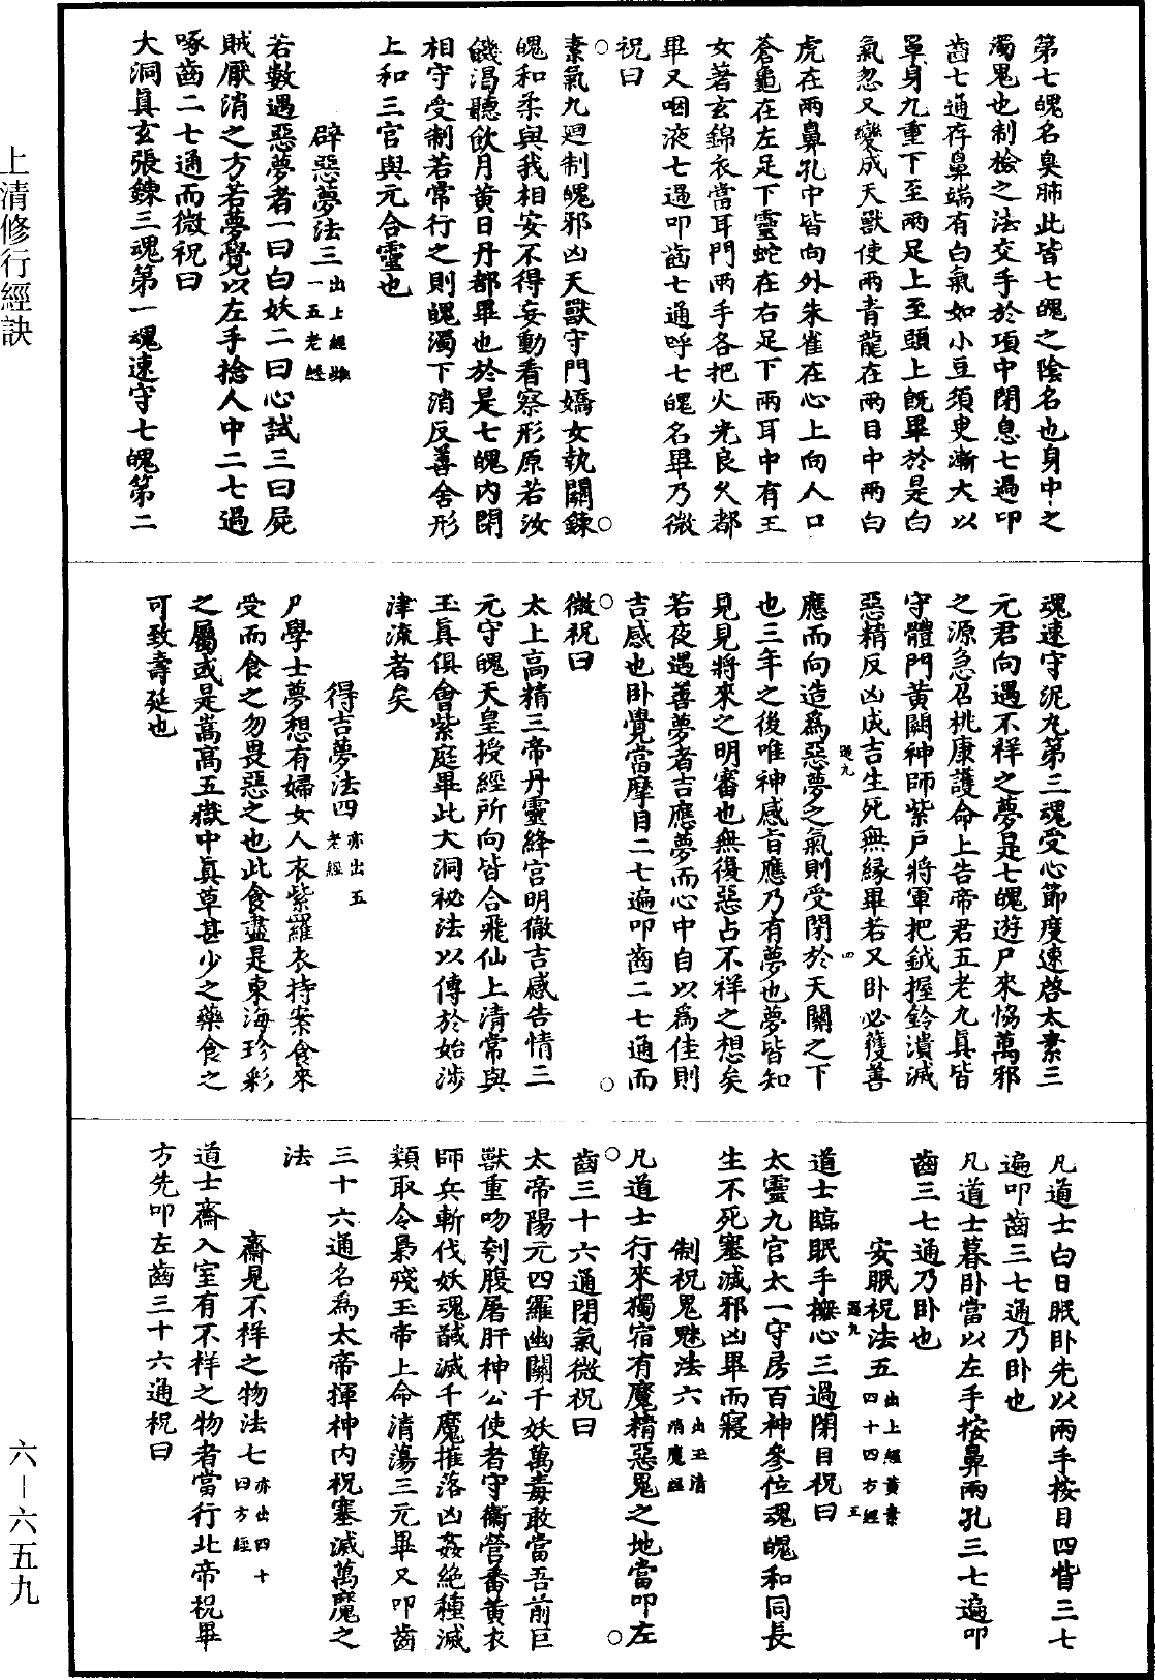 第七魄名臭肺此皆七魄之陰名也身中之
濁鬼也制檢之法交手於項中閉息七過叩
齒七通存鼻端有白氣如小豆須臾漸大以
單身九重下至兩足上至頭上旣畢於是白
氣忽又變成天獸使兩青龍在兩目中兩白
虎在兩鼻孔中皆向外朱雀在心上向人口
蒼龜在左足下靈蛇在右足下兩耳中有玉
女著玄錦衣當耳門兩手各把火光良久都
畢又咽液七過叩齒七通呼七魄名畢乃微
祝曰
素氣九廻制魄邪凶天獸守門嬌女執關鍊
魄和柔與我相安不得妄動看察形原若汝
饑渴聽飲月黃日丹都畢也於是七魄內閉
相守受制若常行之則魄濁下消反善舍形
上和三官與元合靈也
辟惡夢法三
出上經
一五老經
若數遇惡夢者一曰白妖二曰心試三曰屍
賊厭消之方若夢覺以左手捻人中二七過
啄齒二七通而微祝曰
大洞眞玄張鍊三魂第一魂速守七魄第二
魂速守泥丸第三魂受心節度速啓太素三
元君向遇不祥之夢是七魄遊尸來恊萬邪
之源急召桃康護命上告帝君五老九眞皆
守體門黃闕神師紫戶將軍把鉞握鈴潰滅
惡精反凶成吉生死無緣畢若又卧必獲善
應而向造爲惡夢之氣則受閉於天關之下
也三年之後唯神感旨應乃有夢也夢皆知
見見將來之明審也無復惡占不祥之想矣
若夜遇善夢者吉應夢而心中自以爲佳則
吉感也卧覺當摩目二七遍叩齒二七通而
微祝曰
太上高精三帝丹靈絳宮明徹吉感告情三
元守魄天皇授經所向皆合飛仙上清常與
玉眞俱會紫庭畢此大洞祕法以傳於始涉
津流者矣
得吉夢法四
亦出五
老經
凡學士夢想有婦女人衣紫羅衣持案食來
受而食之勿畏惡之也此食盡是東海珍彩
之屬或是嵩高五嶽中眞草甚少之藥食之
可致壽延也
凡道士白日眠卧先以兩手按目四眥三七
遍叩齒三七通乃卧也
凡道士暮卧當以左手按鼻兩孔三七遍叩
齒三七通乃卧也
安眠祝法五
出上經黃素
四十四方經
道士臨眠手撫心三過閉目祝曰
太靈九宮太一守房百神參位魂魄和同長
生不死塞滅邪凶畢而寢
制祝鬼魅法六
出玉清
消魔經
凡道士行來獨宿有魔精惡鬼之地當叩左
齒三十六通閉氣微祝曰
太帝陽元四羅幽關千妖萬毒敢當吾前巨
獸重吻刳腹屠肝神公使者守衞營番黃衣
師兵斬伐妖魂馘滅千魔摧落凶姦絕種滅
類取令梟殘玉帝上命清蕩三元畢又叩齒
三十六通名爲太帝揮神內祝塞滅萬魔之
法
齋見不祥之物法七
亦出四十
四方經
道士齋入室有不祥之物者當行北帝祝畢
方先叩左齒三十六通祝曰
上清修行經訣
六—六五九